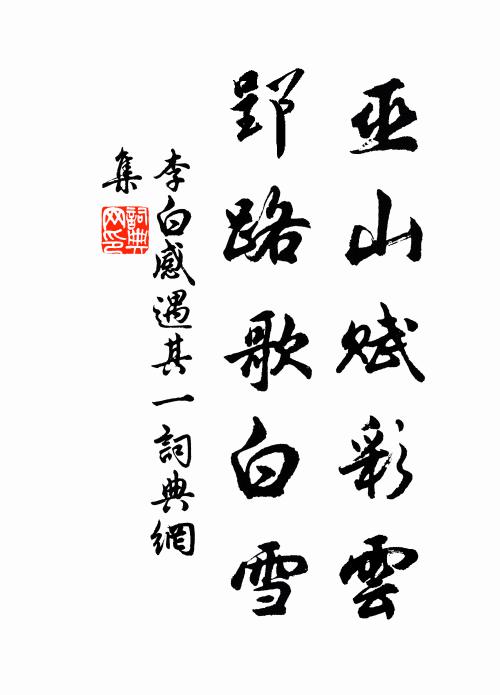 巫山賦彩雲
郢路歌白雪
李白感遇其一詞典網
集
詞典網印